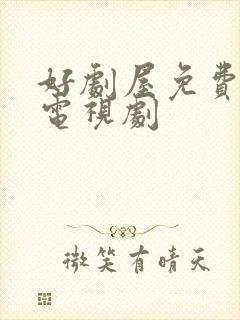 好劇屋免費
電視劇
微笑有晴天